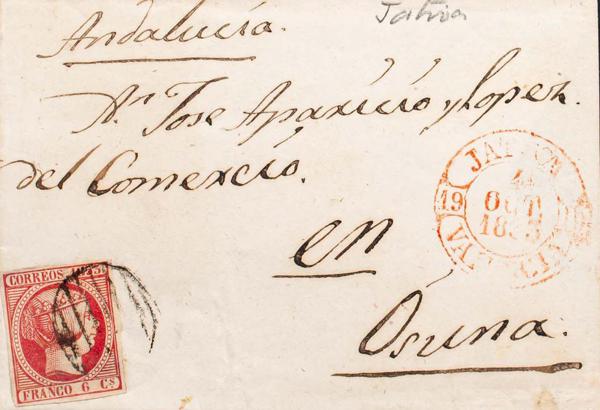 Jativa
Andalucía.
Dn. Jose Aparicio y Lopez.
del Comercio.
en
Osuna.
JATIVA
4
OCT.
1853
19
VALENCIA
CORREOS 1853.
FRANCO 6 Cs